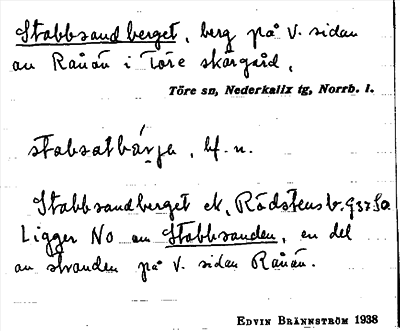 Stabbsandberget, berg på V. sidan
av Rånön i Töre skärgård.
Töre sn, Nederkalix tg, Norrb. l.
stabsatbärje, bf. n.
Stabbsandberget ek, Rödstensbr. 937 Sa
Ligger NO om Stabbsanden, en del
av stranden på V. sidan Rånön.
EDVIN BRÄNNSTRÖM 1938